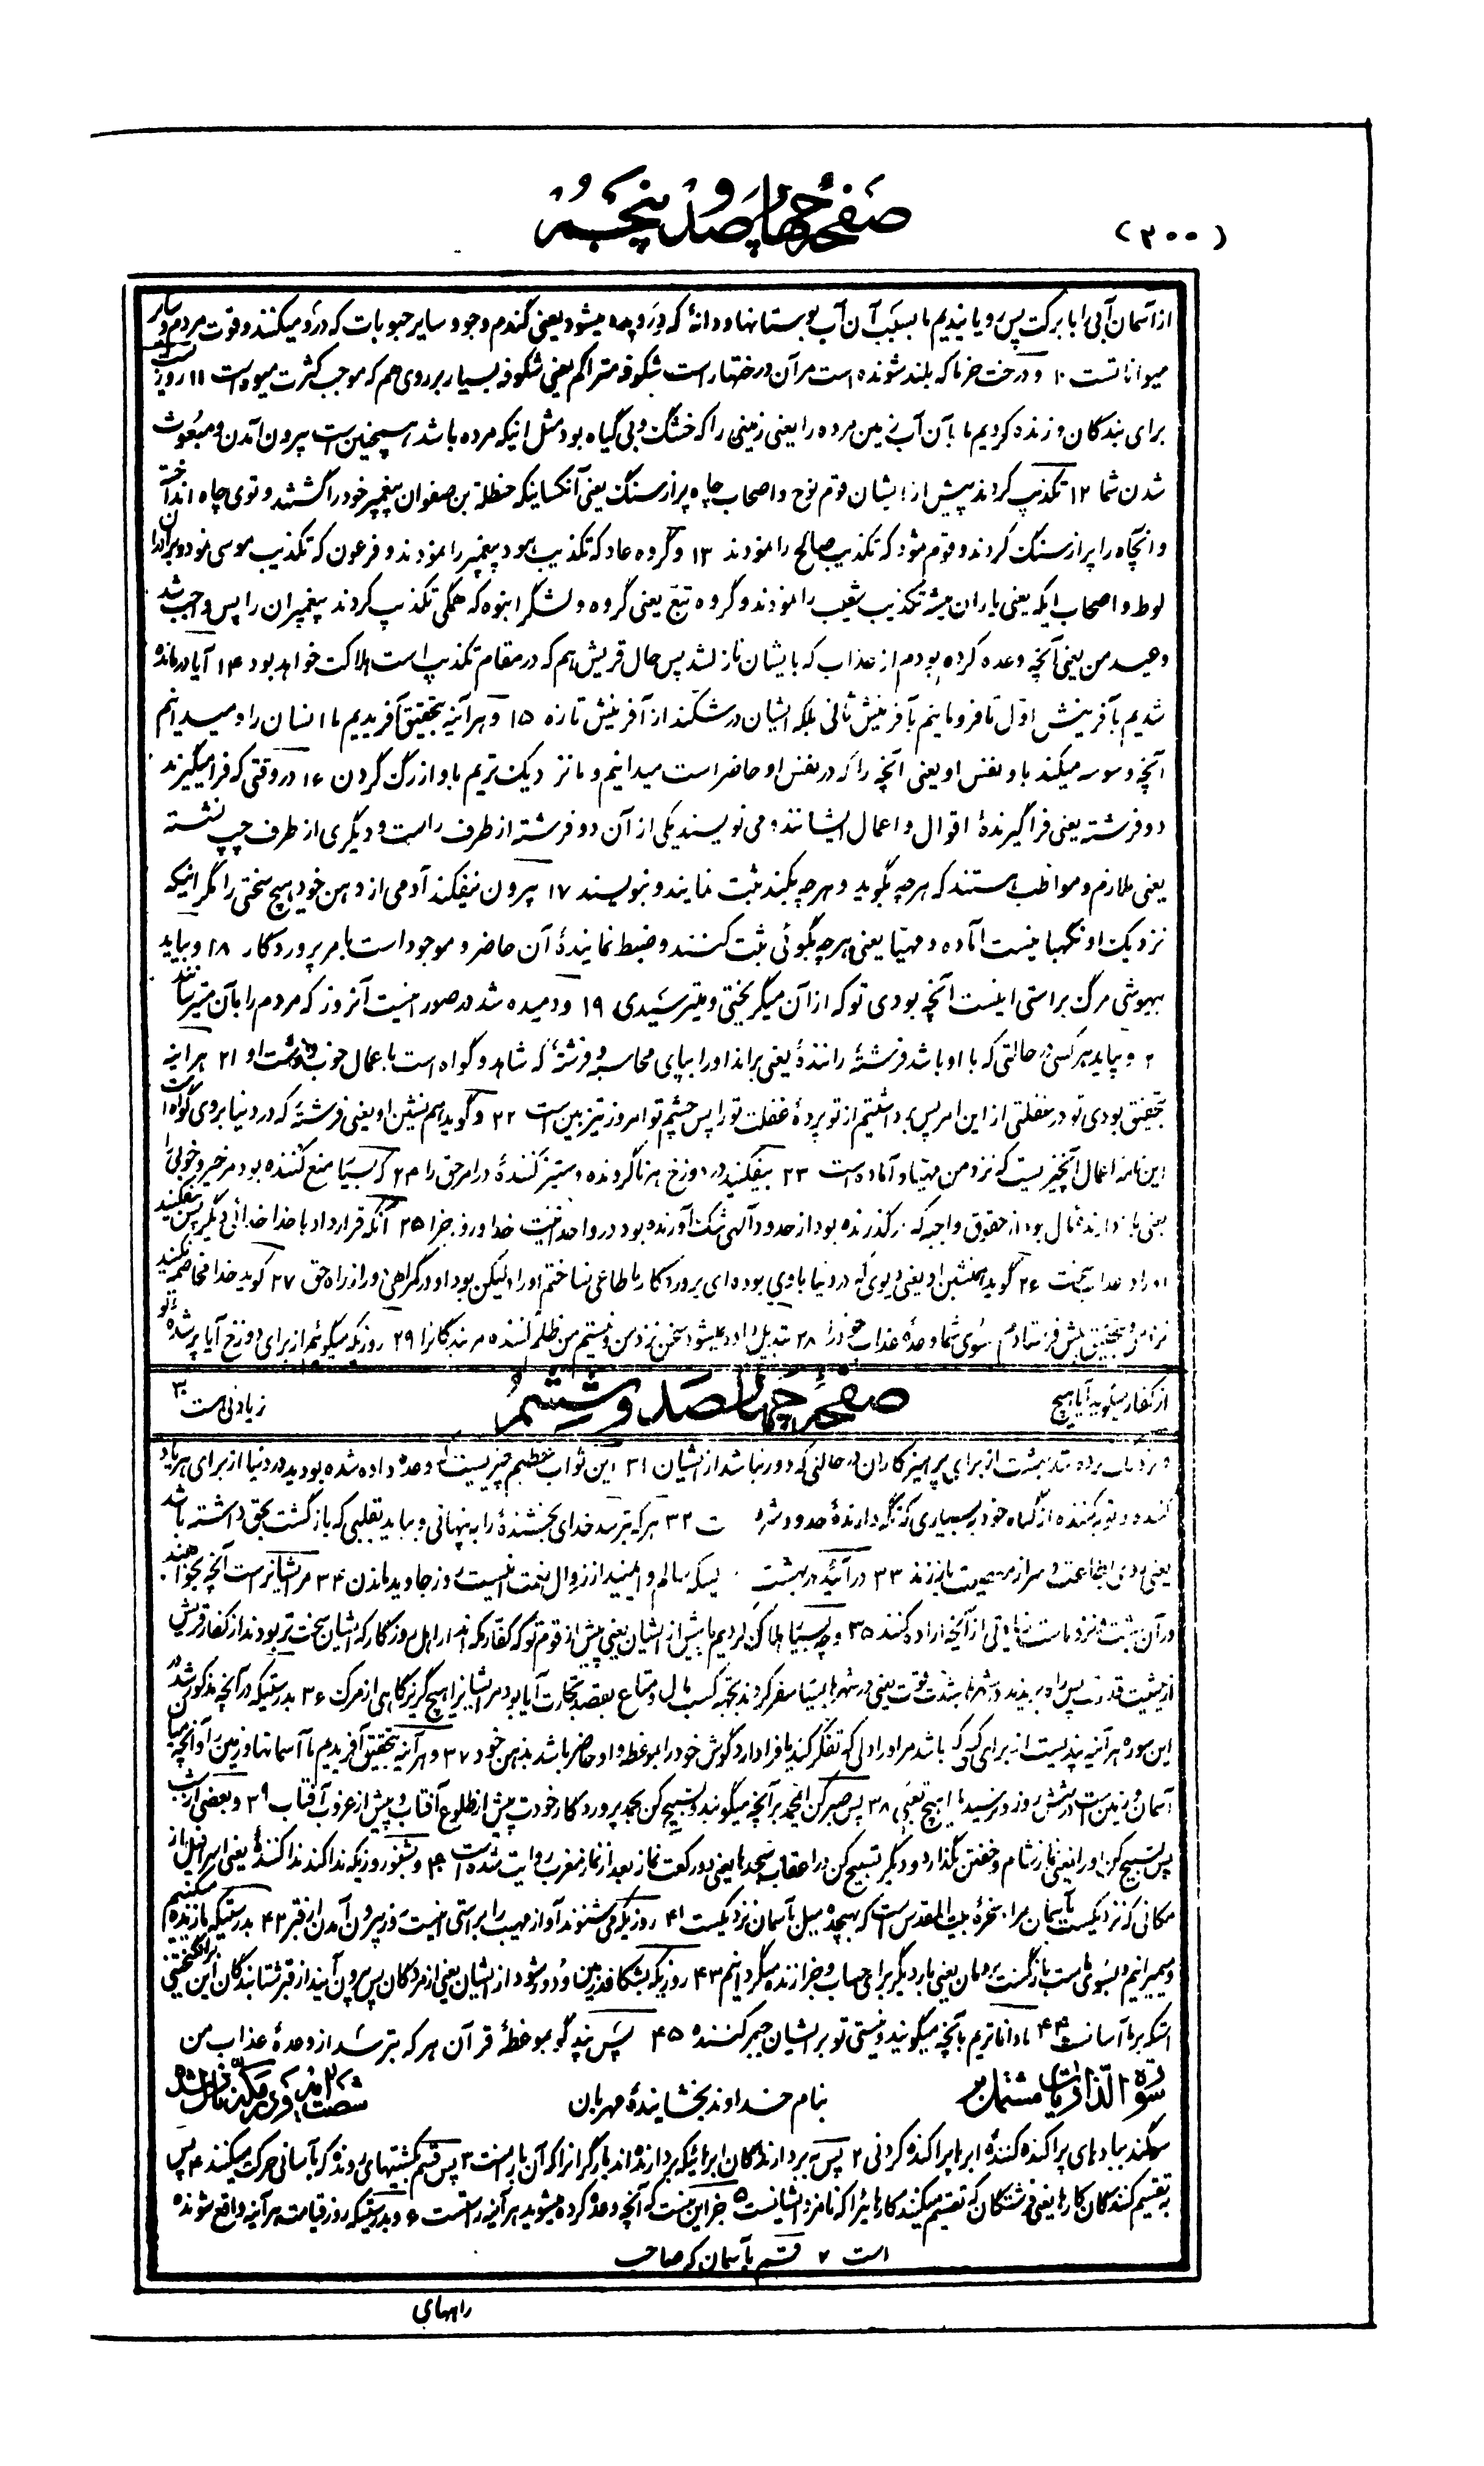 (۲۰۰)
صفحهٔ چهارصد و پنجم
از آسمان آبی را با برکت پس رویانیدیم ما بسبب آن آب بوستانها و دانهٔ که درویده میشود یعنی گندم و جو و سایر حبوبات که درو میکنند و قوت مردم و سایر
حیوانا تست ۱۰ و درخت خرما که بلند شونده است مر آن درختهار است شکوفه متراکم یعنی شکوفه بسیار بر روی هم که موجب کثرت میوه است ۱۱ روزیست
برای بندگان و زنده کردیم ما بآن آب زمین مرده را یعنی زمینی را که خشک و بی گیاه بود مثل اینکه مرده باشد همچنین است بیرون آمدن و مبعوث
شدن شما ۱۲ تکذیب کردند پیش از ایشان قوم نوح و اصحاب چاه پر از سنگ یعنی آنکسانیکه حنظلة بن صفوان پیغمبر خود را کشتند و توی چاه انداختند
و آنچاه را پر از سنگ کردند و قوم ثمود که تکذیب صالح را نمودند ۱۳ و گروه عاد که تکذیب هود پیغمبر را نمودند و فرعون که تکذیب موسی نمود و برادران
لوط و اصحاب ایکه یعنی یاران بیشه تکذیب شعیب را نمودند و گروه تبع یعنی گروه و لشگر انبوه که همگی تکذیب کردند پیغمبران را پس واجب شد
وعید من یعنی آنچه وعده کرده بودم از عذاب که بایشان نازلشد پس حال قریش هم که در مقام تکذیب است هلاکت خواهد بود ۱۴ آیا درمانده
شدیم بآفرینش اول تا فرو مانیم بآفرینش ثانی بلکه ایشان در شکند از آفرینش تازه ۱۵ و هر آینه بتحقیق آفریدیم ما انسان را و میدانیم
آنچه وسوسه میکند باو نفس او یعنی آنچه را که در نفس او حاضر است میدانیم و ما نزدیک تریم باو از رگ گردن ۱۶ در وقتی که فرا میگیرند
دو فرشته یعنی فراگیرندهٔ اقوال و اعمال ایشانند و می نویسند یکی از آن دو فرشته از طرف راست و دیگری از طرف چپ نشسته
یعنی ملازم و مواظب هستند که هر چه بگوید و هر چه بکند ثبت نمایند و بنویسند ۱۷ بیرون نیفکند آدمی از دهن خود هیچ سخنی را مگر اینکه
نزدیک او نگهبانیست آماده و مهیا یعنی هر چه بگوئی ثبت کننده و ضبط نمایندهٔ آن حاضر و موجود است بامر پروردگار ۱۸ و بیاید
بیهوشی مرگ براستی اینست آنچه بودی تو که از آن میگریختی و میترسیدی ۱۹ و دمیده شد در صور اینست آنروز که مردم را بآن میترسانند
۲ و بیاید هر کسی در حالتی که با او باشد فرشتهٔ رانندهٔ یعنی براند او را بپای محاسبه و فرشتهٔ که شاهد و گواه است باعمال خوب و زشت او ۲۱ هر آینه
بتحقیق بودی تو در غفلتی از این امر پس برداشتیم از تو پردهٔ غفلت تو را پس چشم تو امروز تیز بین است ۲۲ و گوید همنشین او یعنی فرشتهٔ که در دنیا بروی گواه است
این نامه اعمال آنچیزیست که نزد من مهیا و آماده است ۲۳ بیفکنید در دوزخ هر ناگرونده و ستیز کنندهٔ در امر حق را ۲۴ که بسیار منع کننده بود مر خیر و خوبی را
یعنی باز دارندهٔ مال بود از حقوق واجبه که درگذرنده بود از حدود آلهی شک آورنده بود در وحدانیت خدا و روز جزا ۲۵ آنکه قرار داد با خدا خدائی دیگر پس بیفکنید
او را در عذاب سخت ۲۶ گوید همنشین او یعنی دیوی که در دنیا با وی بوده ای پروردگار ما طاغی نساختم او را ولیکن بود او در گمراهی دور از راه حق ۲۷ گوید خدا مخاصمه نکنید
نزد من و بتحقیق پیش فرستادم بسوی شما وعدهٔ عذاب خود را ۲۸ تبدیل داده نمیشود سخن نزد من و نیستم من ظلم کننده مر بندگانرا ۲۹ روزیکه میگوئیم از برای دوزخ آیا پر شدهٔ تو
از کفار میگوید آیا هیچ
صفحهٔ چهارصد و ششم
زیادتی هست ۳۰
و نزدیک برده شد بهشت از برای پرهیزکاران در حالتی که دور نباشد از ایشان ۳۱ این ثواب عظیم چیزیست که وعده داده شده بودید در دنیا از برای هر باز
کننده و توبه کننده از گناه خود به بسیاری که نگه دارندهٔ حدود شرع ت ۳۲ هر که بترسد خدای بخشندهٔ را به پنهانی و بیاید بقلبی که بازگشت بحق داشته باشد
۳۳ درآئید در بهشت سالم و ایمنید از زوال نعمت اینست روز جاوید ماندن ۳۴ مر ایشانراست آنچه بخواهند
در آن بهشت و نزد ماست زیادتی از آنچه اراده کنند ۳۵ و چه بسیار هلاک کردیم ما پیش از ایشان یعنی پیش از قوم تو که کفار مکه اند از اهل روزگار که ایشان سخت تر بودند از کفار قریش
از حیثیت قدرت پس راه بریدند در شهرها بشدت قوت یعنی در شهرها بسیار سفر کردند بجهة کسب مال و متاع بقصد تجارت آیا بود مر ایشانرا هیچ گریزگاهی از مرگ ۳۶ بدرستیکه در آنچه مذکور شد در
این سوره هر آینه پندیست از برای کسی که باشد مر او را دلی که تفکر کند یا فرا دارد گوش خود را بموعظه و او حاضر باشد بذهن خود ۳۷ و هر آینه بتحقیق آفریدیم ما آسمانها و زمین را و آنچه میان
آسمان و زمین است در شش روز و نرسید ما را هیچ تعبی ۳۸ پس صبر کن ایمحمد بر آنچه میگویند و تسبیح کن بحمد پروردگار خودت پیش از طلوع آفتاب و پیش از غروب آفتاب ۳۹ و بعضی از شب
پس تسبیح کن او را یعنی نماز شام و خفتن بگذار و دیگر تسبیح کن در اعقاب سجدها یعنی دو رکعت نماز بعد از نماز مغرب روایت شده است ۴۰ و بشنو روزیکه ندا کند ندا کنندهٔ یعنی اسرافیل از
مکانی که نزدیکست بآسمان مراد صخرهٔ بیت المقدس است که بهیجده میل بآسمان نزدیکست ۴۱ روزیکه می شنوند آواز مهیب را براستی اینست روز بیرون آمدن از قبر ۴۲ بدرستیکه ما زنده میکنیم
و میمیرانیم و بسوی ماست بازگشت مردمان یعنی بار دیگر برای حساب و جزا زنده میگردانیم ۴۳ روزیکه بشکافد زمین و دور شود از ایشان یعنی از مردگان پس بیرون آیند از قبر شتابندگان این برانگیختنی
استکه بر ما آسانست ۴۴ ما داناتریم بآنچه میگویند و نیستی تو بر ایشان جبر کننده ۴۵ پس پند گو بموعظهٔ قرآن هر که بترسد از وعدهٔ عذاب من
سورة الذاریات مشتمل بر
بنام خداوند بخشایندهٔ مهربان
شصت آیه و در مکه نازل شده
سوگند ببادهای پراکنده کنندهٔ ابرها پراکنده کردنی ۲ پس به بردارندگان ابرهائیکه بردارنده اند بار گرانرا که آن بارانست ۳ پس قسم بکشتیهای رونده که بآسانی حرکت میکنند ۴ پس
به تقسیم کنندگان کارها یعنی فرشتگان که تقسیم میکنند کارهائیرا که نامزد ایشانست ۵ جز این نیست که آنچه وعده کرده میشوید هر آینه راست است ۶ و بدرستیکه روز قیامت هر آینه واقع شونده
است ۷ قسم بآسمان که صاحب
راههای